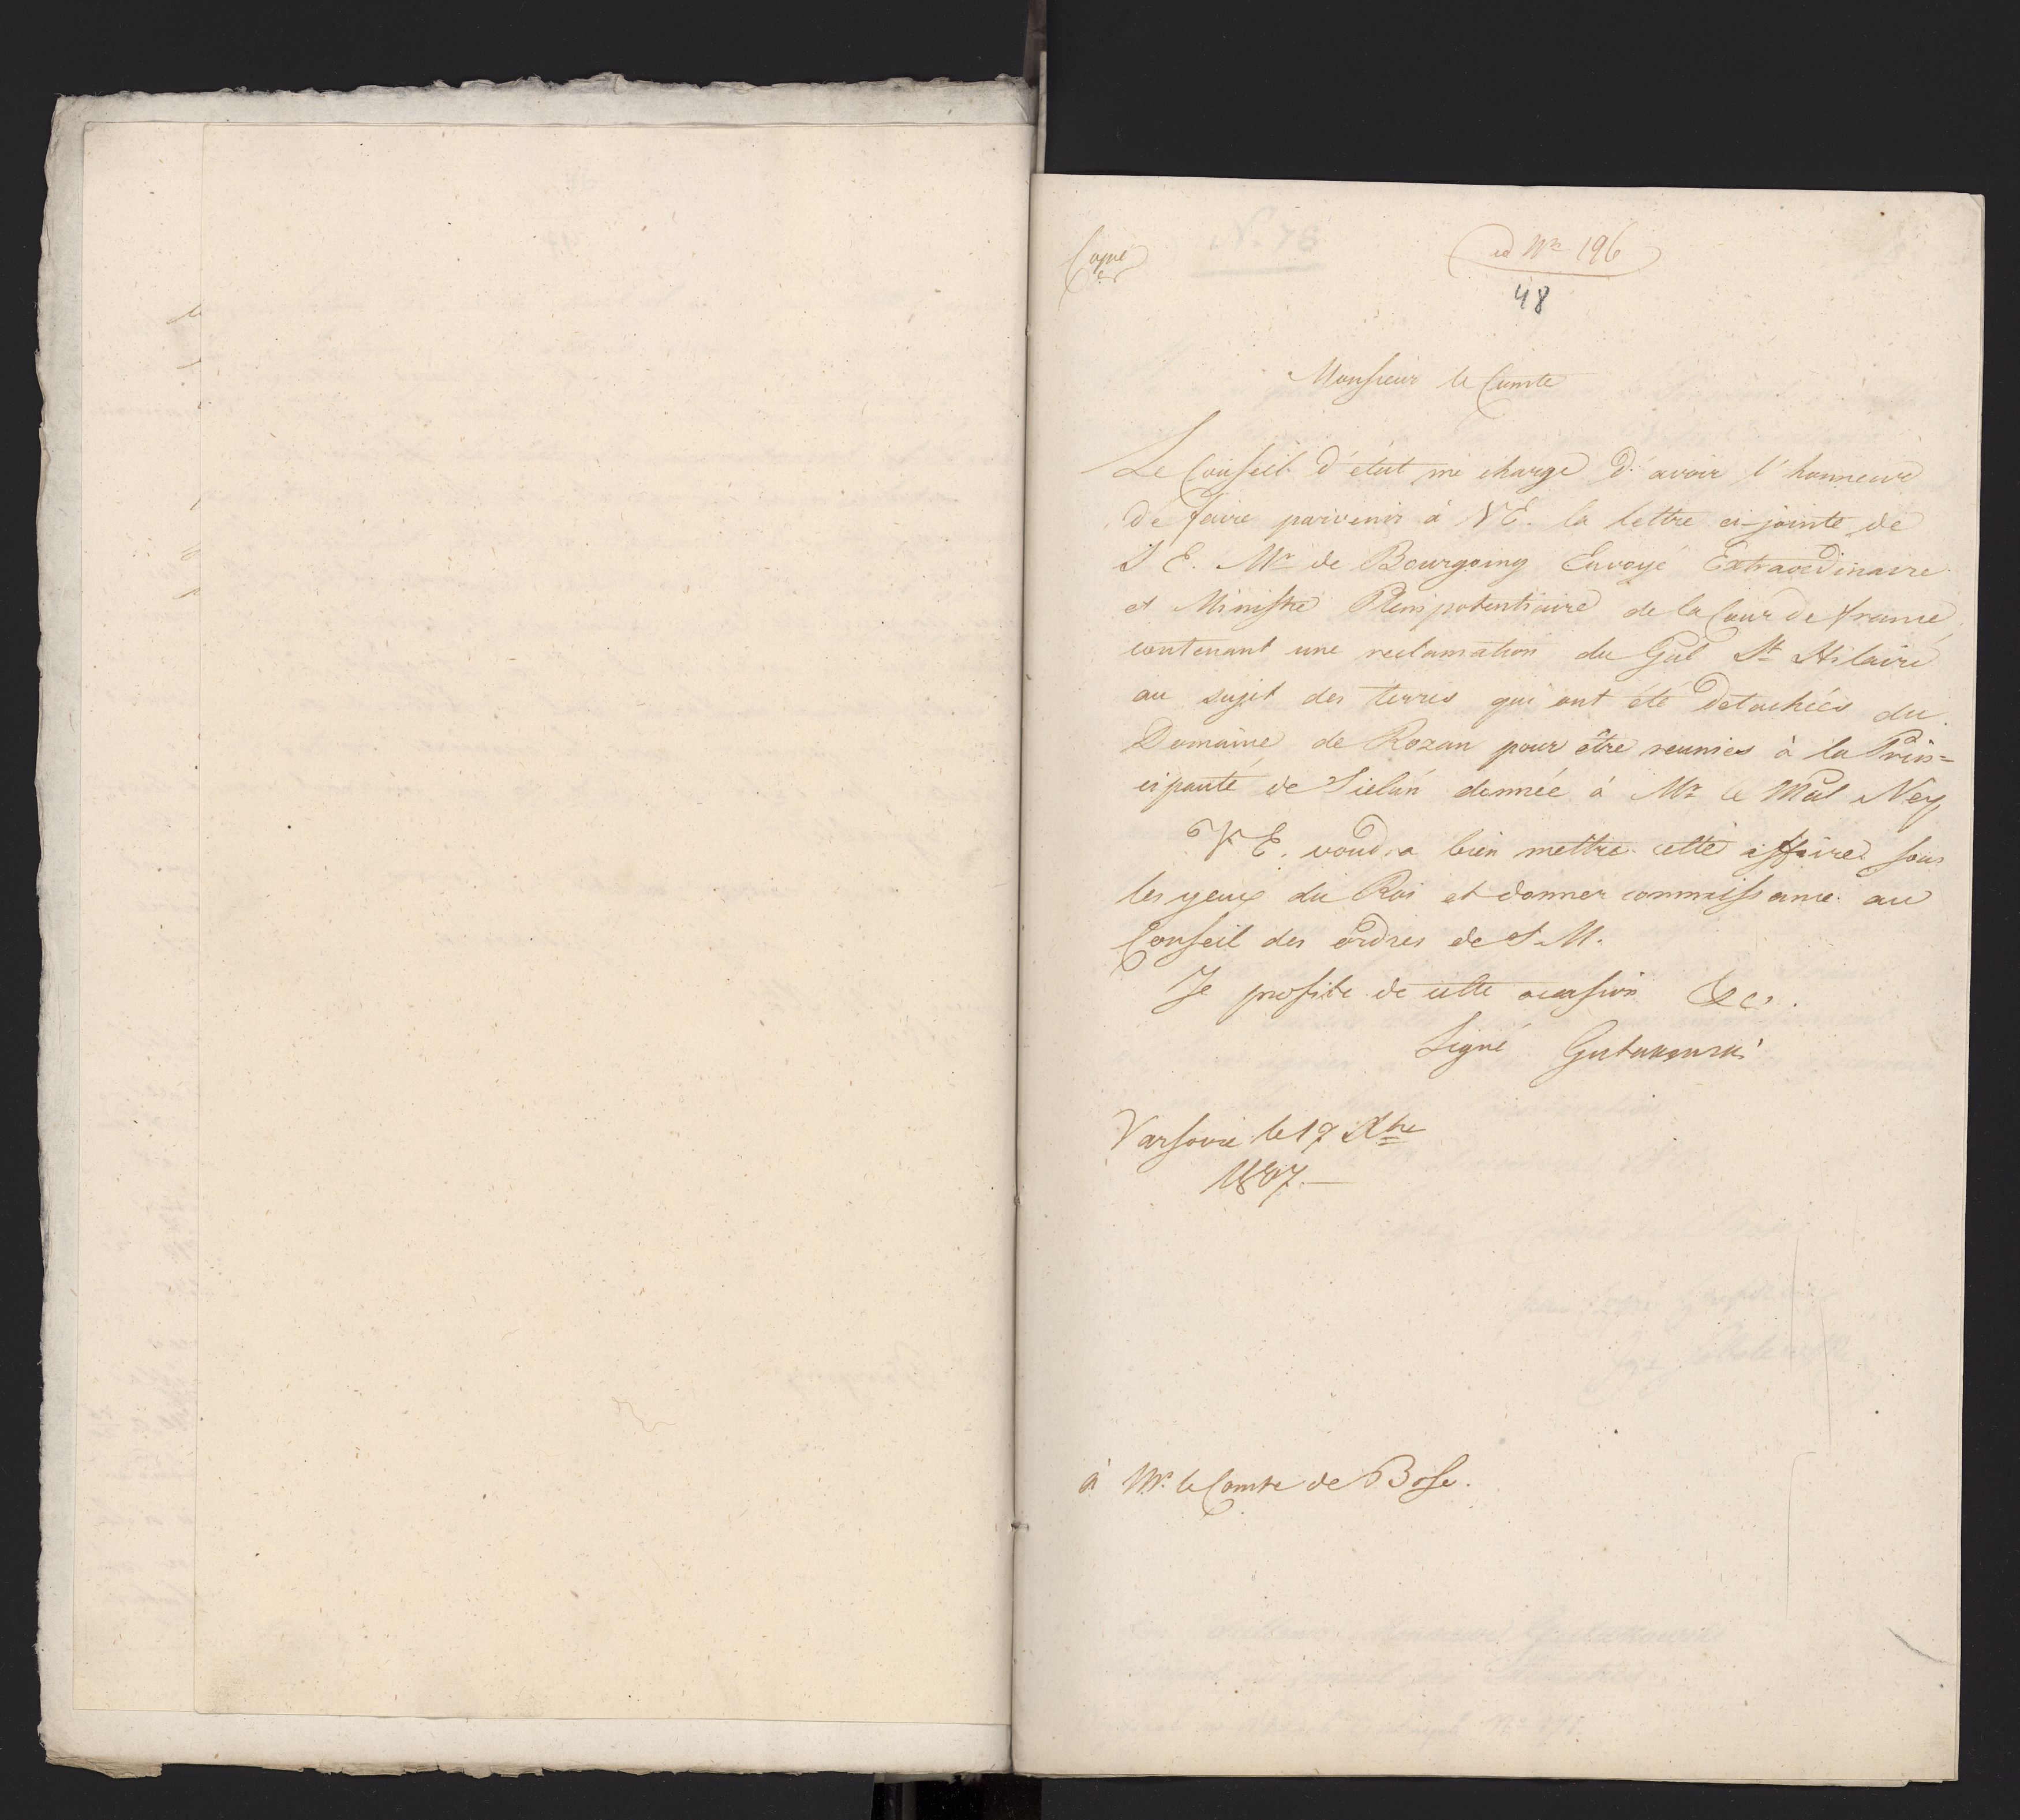 Copie
ad Nr 196
48
Monsieur le Comte
Le Conseil d'état me charge d'avoir l'honneur
de faire parvenir à V E. la lettre ci-jointe de
S E. Mr de Bourgoing Envoyé Extraordinaire
et Ministre Plenipotentiaire de la Cour de France,
contenant une reclamation du Gal St Hilaire
au sujet des terres qui ont été detachées du
Domaine de Rozan pour être reunies à la Prin=
cipauté de Sielun donnée à Mr le Mal Ney
V E. voudra bien mettre cette affaire sous
les yeux du Roi et donner connaissance au
Conseil des ordres de S. M.
Je profite de cette occasion &c.
Signé Gutakowski
Varsovie le 17 Xbre
1807.—
à Mr. le Comte de Bose.